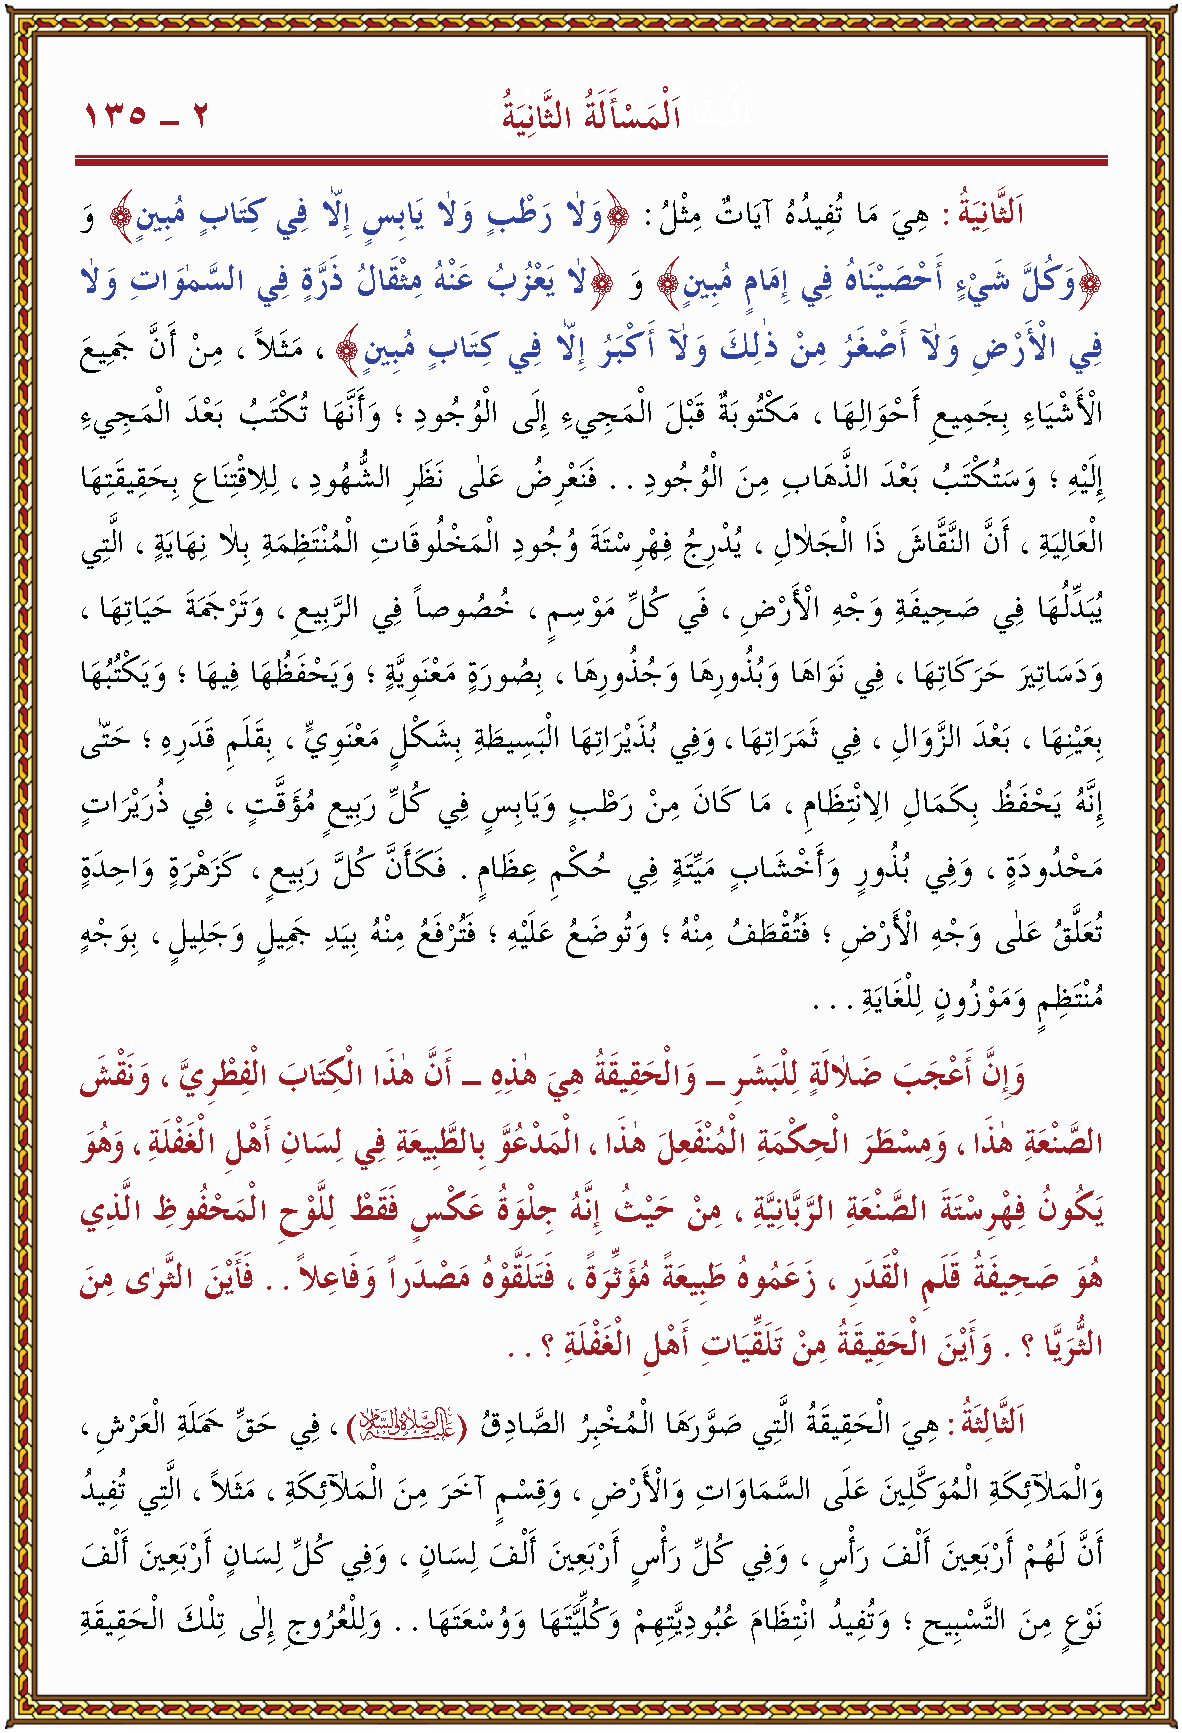 اَلْمَسْأَلَةُ الثَّانِيَةُ ٢ ـ ١٣٥
اَلثَّانِيَةُ : هِيَ مَا تُفِيدُهُ آيَاتٌ مِثْلُ : ﴿وَلَا رَطْبٍ وَلَا يَابِسٍ إِلَّا فِي كِتَابٍ مُبِينٍ﴾ وَ
﴿وَكُلَّ شَيْءٍ أَحْصَيْنَاهُ فِي إِمَامٍ مُبِينٍ﴾ وَ ﴿لَا يَعْزُبُ عَنْهُ مِثْقَالُ ذَرَّةٍ فِي السَّمٰوَاتِ وَلَا
فِي الْأَرْضِ وَلَآ أَصْغَرُ مِنْ ذٰلِكَ وَلَآ أَكْبَرُ إِلَّا فِي كِتَابٍ مُبِينٍ﴾ ، مَثَلاً ، مِنْ أَنَّ جَمِيعَ
الْأَشْيَاءِ بِجَمِيعِ أَحْوَالِهَا ، مَكْتُوبَةٌ قَبْلَ الْمَجِيءِ إِلَى الْوُجُودِ ؛ وَأَنَّهَا تُكْتَبُ بَعْدَ الْمَجِيءِ
إِلَيْهِ ؛ وَسَتُكْتَبُ بَعْدَ الذَّهَابِ مِنَ الْوُجُودِ . . فَنَعْرِضُ عَلٰى نَظَرِ الشُّهُودِ ، لِلِاقْتِنَاعِ بِحَقِيقَتِهَا
الْعَالِيَةِ ، أَنَّ النَّقَّاشَ ذَا الْجَلَالِ ، يُدْرِجُ فِهْرِسْتَةَ وُجُودِ الْمَخْلُوقَاتِ الْمُنْتَظِمَةِ بِلَا نِهَايَةٍ ، الَّتِي
يُبَدِّلُهَا فِي صَحِيفَةِ وَجْهِ الْأَرْضِ ، فَي كُلِّ مَوْسِمٍ ، خُصُوصاً فِي الرَّبِيعِ ، وَتَرْجَمَةَ حَيَاتِهَا ،
وَدَسَاتِيرَ حَرَكَاتِهَا ، فِي نَوَاهَا وَبُذُورِهَا وَجُذُورِهَا ، بِصُورَةٍ مَعْنَوِيَّةٍ ؛ وَيَحْفَظُهَا فِيهَا ؛ وَيَكْتُبُهَا
بِعَيْنِهَا ، بَعْدَ الزَّوَالِ ، فِي ثَمَرَاتِهَا ، وَفِي بُذَيْرَاتِهَا الْبَسِيطَةِ بِشَكْلٍ مَعْنَوِيٍّ ، بِقَلَمِ قَدَرِهِ ؛ حَتّٰى
إِنَّهُ يَحْفَظُ بِكَمَالِ الِانْتِظَامِ ، مَا كَانَ مِنْ رَطْبٍ وَيَابِسٍ فِي كُلِّ رَبِيعٍ مُؤَقَّتٍ ، فِي ذُرَيْرَاتٍ
مَحْدُودَةٍ ، وَفِي بُذُورٍ وَأَخْشَابٍ مَيِّتَةٍ فِي حُكْمِ عِظَامٍ . فَكَأَنَّ كُلَّ رَبِيعٍ ، كَزَهْرَةٍ وَاحِدَةٍ
تُعَلَّقُ عَلٰى وَجْهِ الْأَرْضِ ؛ فَتُقْطَفُ مِنْهُ ؛ وَتُوضَعُ عَلَيْهِ ؛ فَتُرْفَعُ مِنْهُ بِيَدِ جَمِيلٍ وَجَلِيلٍ ، بِوَجْهٍ
مُنْتَظِمٍ وَمَوْزُونٍ لِلْغَايَةِ . . .
وَإِنَّ أَعْجَبَ ضَلَالَةٍ لِلْبَشَرِ ـ وَالْحَقِيقَةُ هِيَ هٰذِهِ ـ أَنَّ هٰذَا الْكِتَابَ الْفِطْرِيَّ ، وَنَقْشَ
الصَّنْعَةِ هٰذَا ، وَمِسْطَرَ الْحِكْمَةِ الْمُنْفَعِلَ هٰذَا ، الْمَدْعُوَّ بِالطَّبِيعَةِ فِي لِسَانِ أَهْلِ الْغَفْلَةِ ، وَهُوَ
يَكُونُ فِهْرِسْتَةَ الصَّنْعَةِ الرَّبَّانِيَّةِ ، مِنْ حَيْثُ إِنَّهُ جِلْوَةُ عَكْسٍ فَقَطْ لِلَّوْحِ الْمَحْفُوظِ الَّذِي
هُوَ صَحِيفَةُ قَلَمِ الْقَدَرِ ، زَعَمُوهُ طَبِيعَةً مُؤَثِّرَةً ، فَتَلَقَّوْهُ مَصْدَراً وَفَاعِلاً . . فَأَيْنَ الثَّرٰى مِنَ
الثُّرَيَّا ؟ . وَأَيْنَ الْحَقِيقَةُ مِنْ تَلَقِّيَاتِ أَهْلِ الْغَفْلَةِ ؟ . .
اَلثَّالِثَةُ : هِيَ الْحَقِيقَةُ الَّتِي صَوَّرَهَا الْمُخْبِرُ الصَّادِقُ (عليه الصلاة والسلام) ، فِي حَقِّ حَمَلَةِ الْعَرْشِ ،
وَالْمَلَآئِكَةِ الْمُوَكَّلِينَ عَلَى السَّمَاوَاتِ وَالْأَرْضِ ، وَقِسْمٍ آخَرَ مِنَ الْمَلَآئِكَةِ ، مَثَلاً ، الَّتِي تُفِيدُ
أَنَّ لَهُمْ أَرْبَعِينَ أَلْفَ رَأْسٍ ، وَفِي كُلِّ رَأْسٍ أَرْبَعِينَ أَلْفَ لِسَانٍ ، وَفِي كُلِّ لِسَانٍ أَرْبَعِينَ أَلْفَ
نَوْعٍ مِنَ التَّسْبِيحِ ؛ وَتُفِيدُ انْتِظَامَ عُبُودِيَّتِهِمْ وَكُلِّيَّتَهَا وَوُسْعَتَهَا . . وَلِلْعُرُوجِ إِلٰى تِلْكَ الْحَقِيقَةِ